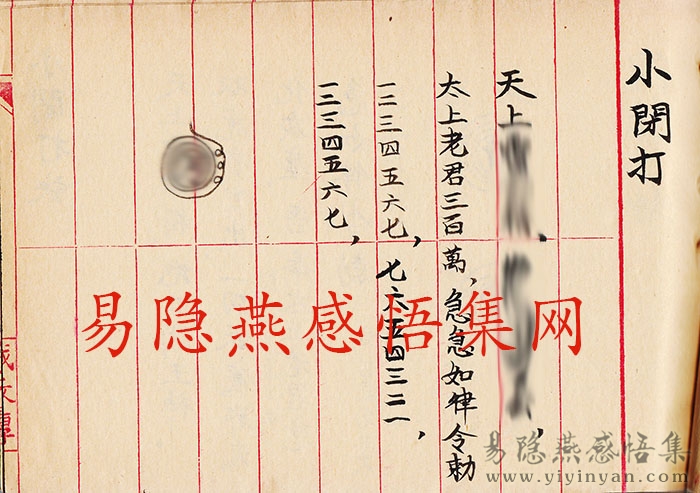 小閉打
天上
太上老君三百萬，急急如律令勅
一二三四五六七，七六五四三二一，
一二三四五六七，
易隐燕感悟集网
易隐燕感悟集
www.yiyinyan.com